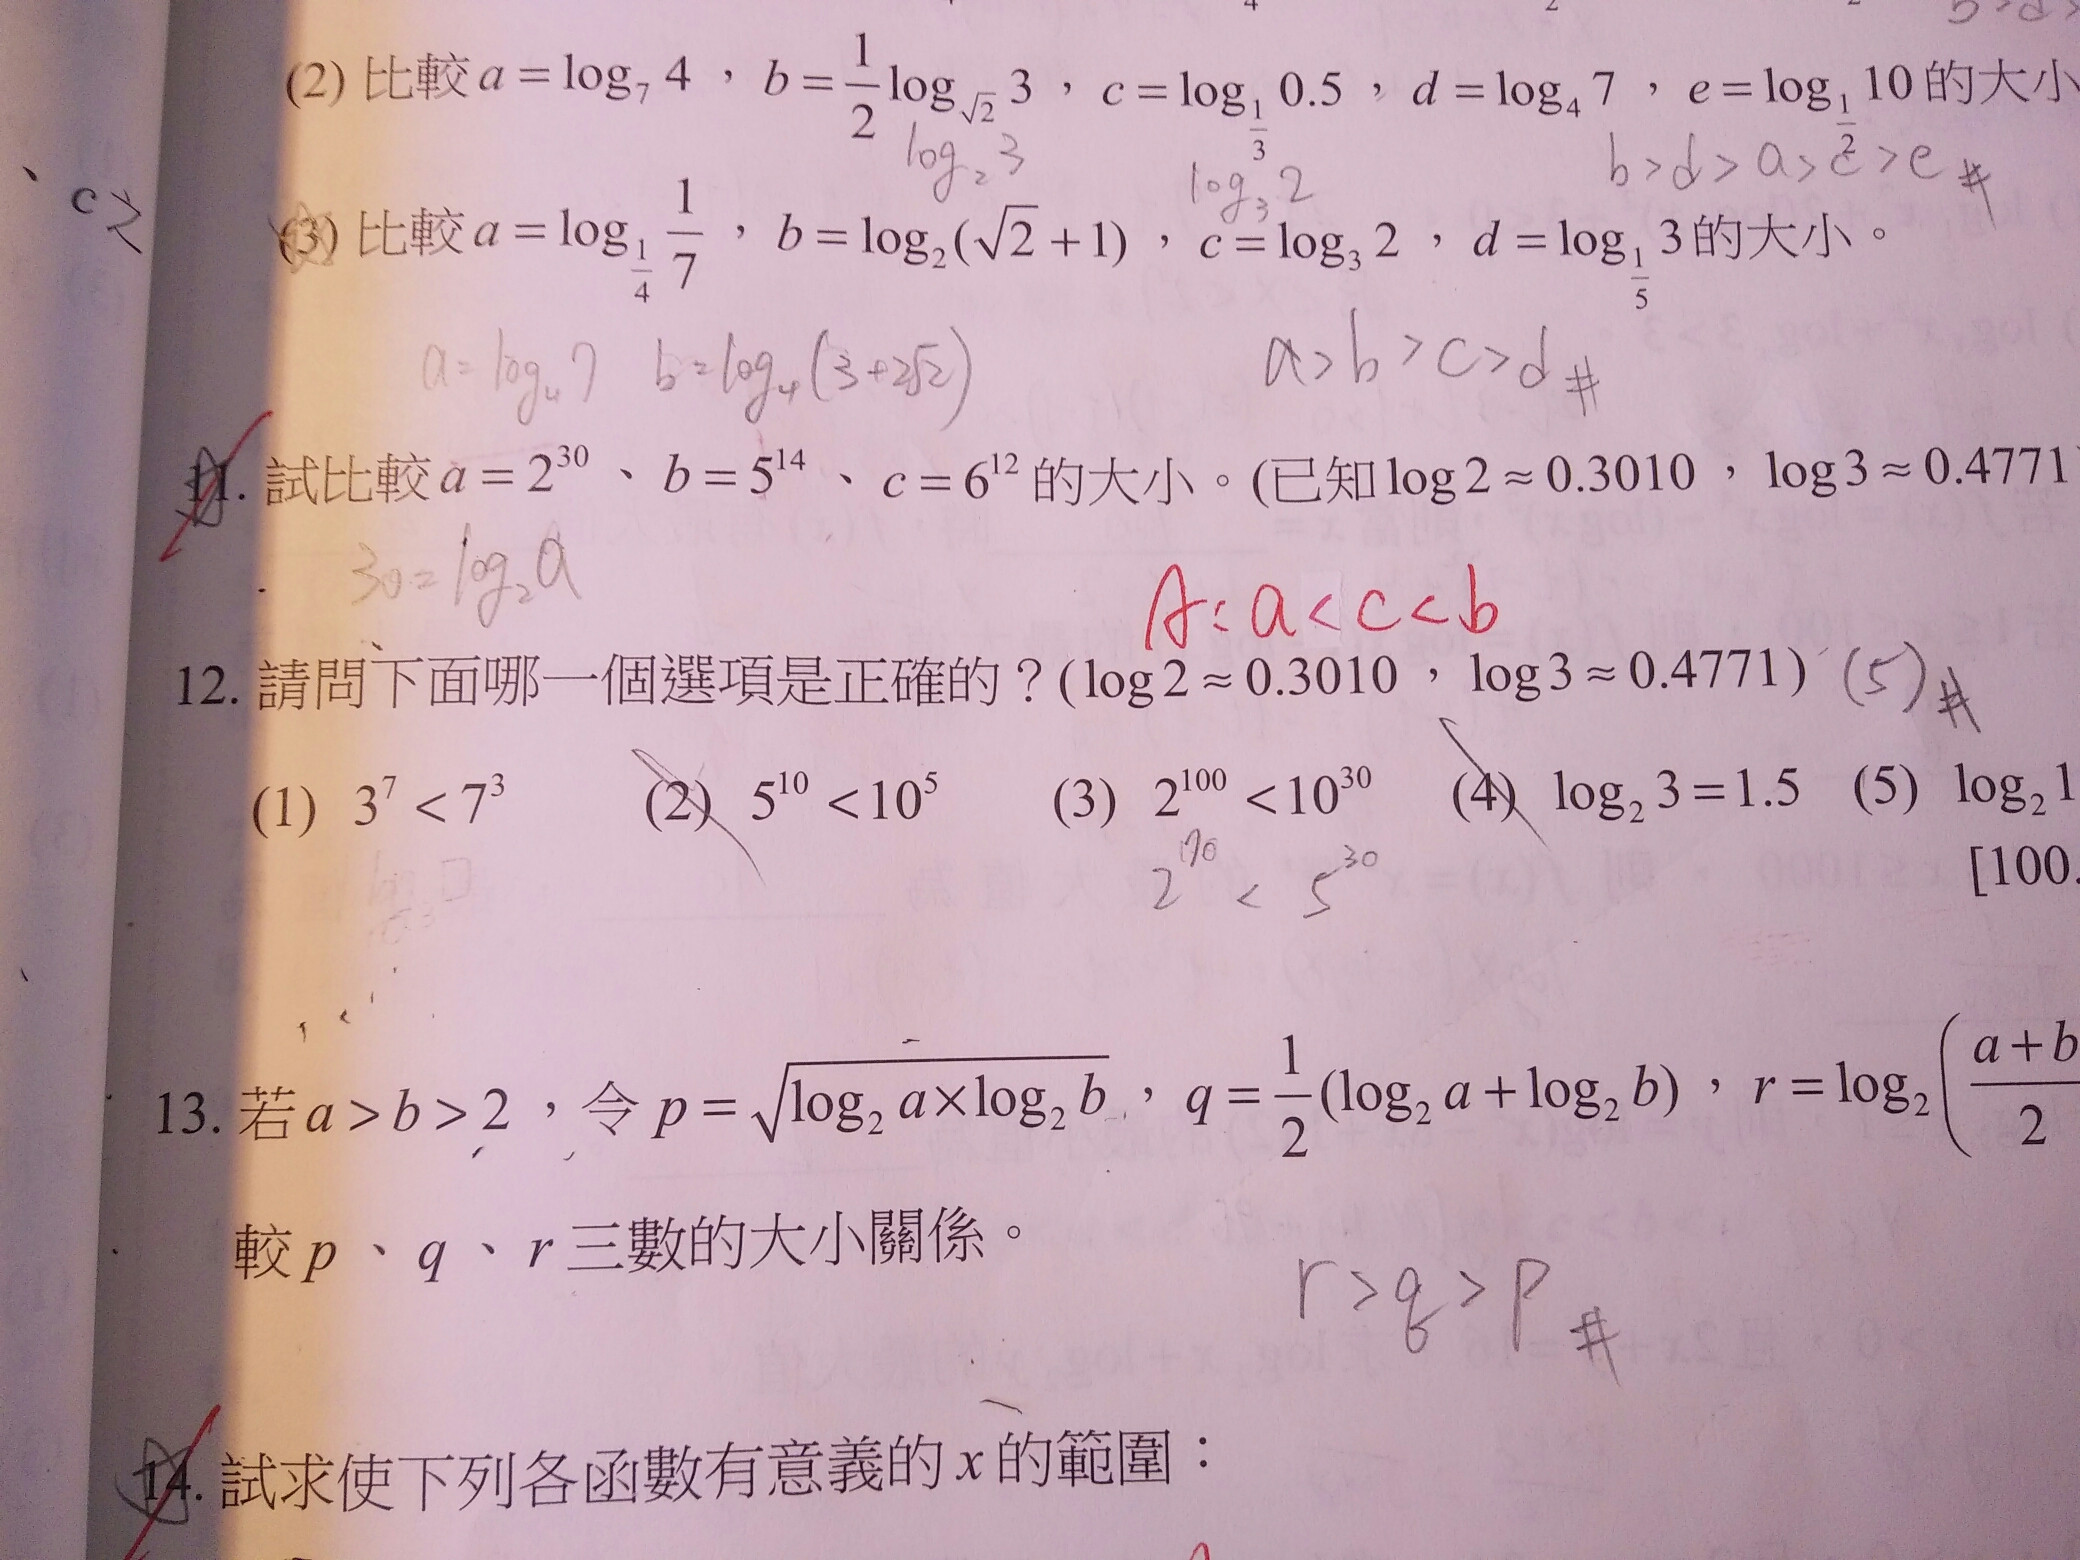 (2) 比較 a = log₇ 4 , b = 1/2 log_√2 3 , c = log_1/3 0.5 , d = log₄ 7 , e = log_1/2 10 的大小
log₂ 3 log₃ 2 b > d > a > c > e #
c >
(3) 比較 a = log_1/4 1/7 , b = log₂(√2 + 1) , c = log₃ 2 , d = log_1/5 3 的大小。
a = log₄ 7 b = log₄ (3+2√2) a > b > c > d #
11. 試比較 a = 2³⁰ 、 b = 5¹⁴ 、 c = 6¹² 的大小。(已知 log 2 ≈ 0.3010 , log 3 ≈ 0.4771
30 = log₂ a
A: a < c < b
12. 請問下面哪一個選項是正確的？( log 2 ≈ 0.3010 , log 3 ≈ 0.4771 ) (5) #
(1) 3⁷ < 7³ (2) 5¹⁰ < 10⁵ (3) 2¹⁰⁰ < 10³⁰ (4) log₂ 3 = 1.5 (5) log₂ 1
2⁷⁰ < 5³⁰ [100.
13. 若 a > b > 2 , 令 p = √(log₂ a × log₂ b) , q = 1/2 (log₂ a + log₂ b) , r = log₂ ( a + b / 2
較 p 、 q 、 r 三數的大小關係。
r > q > p #
14. 試求使下列各函數有意義的 x 的範圍：